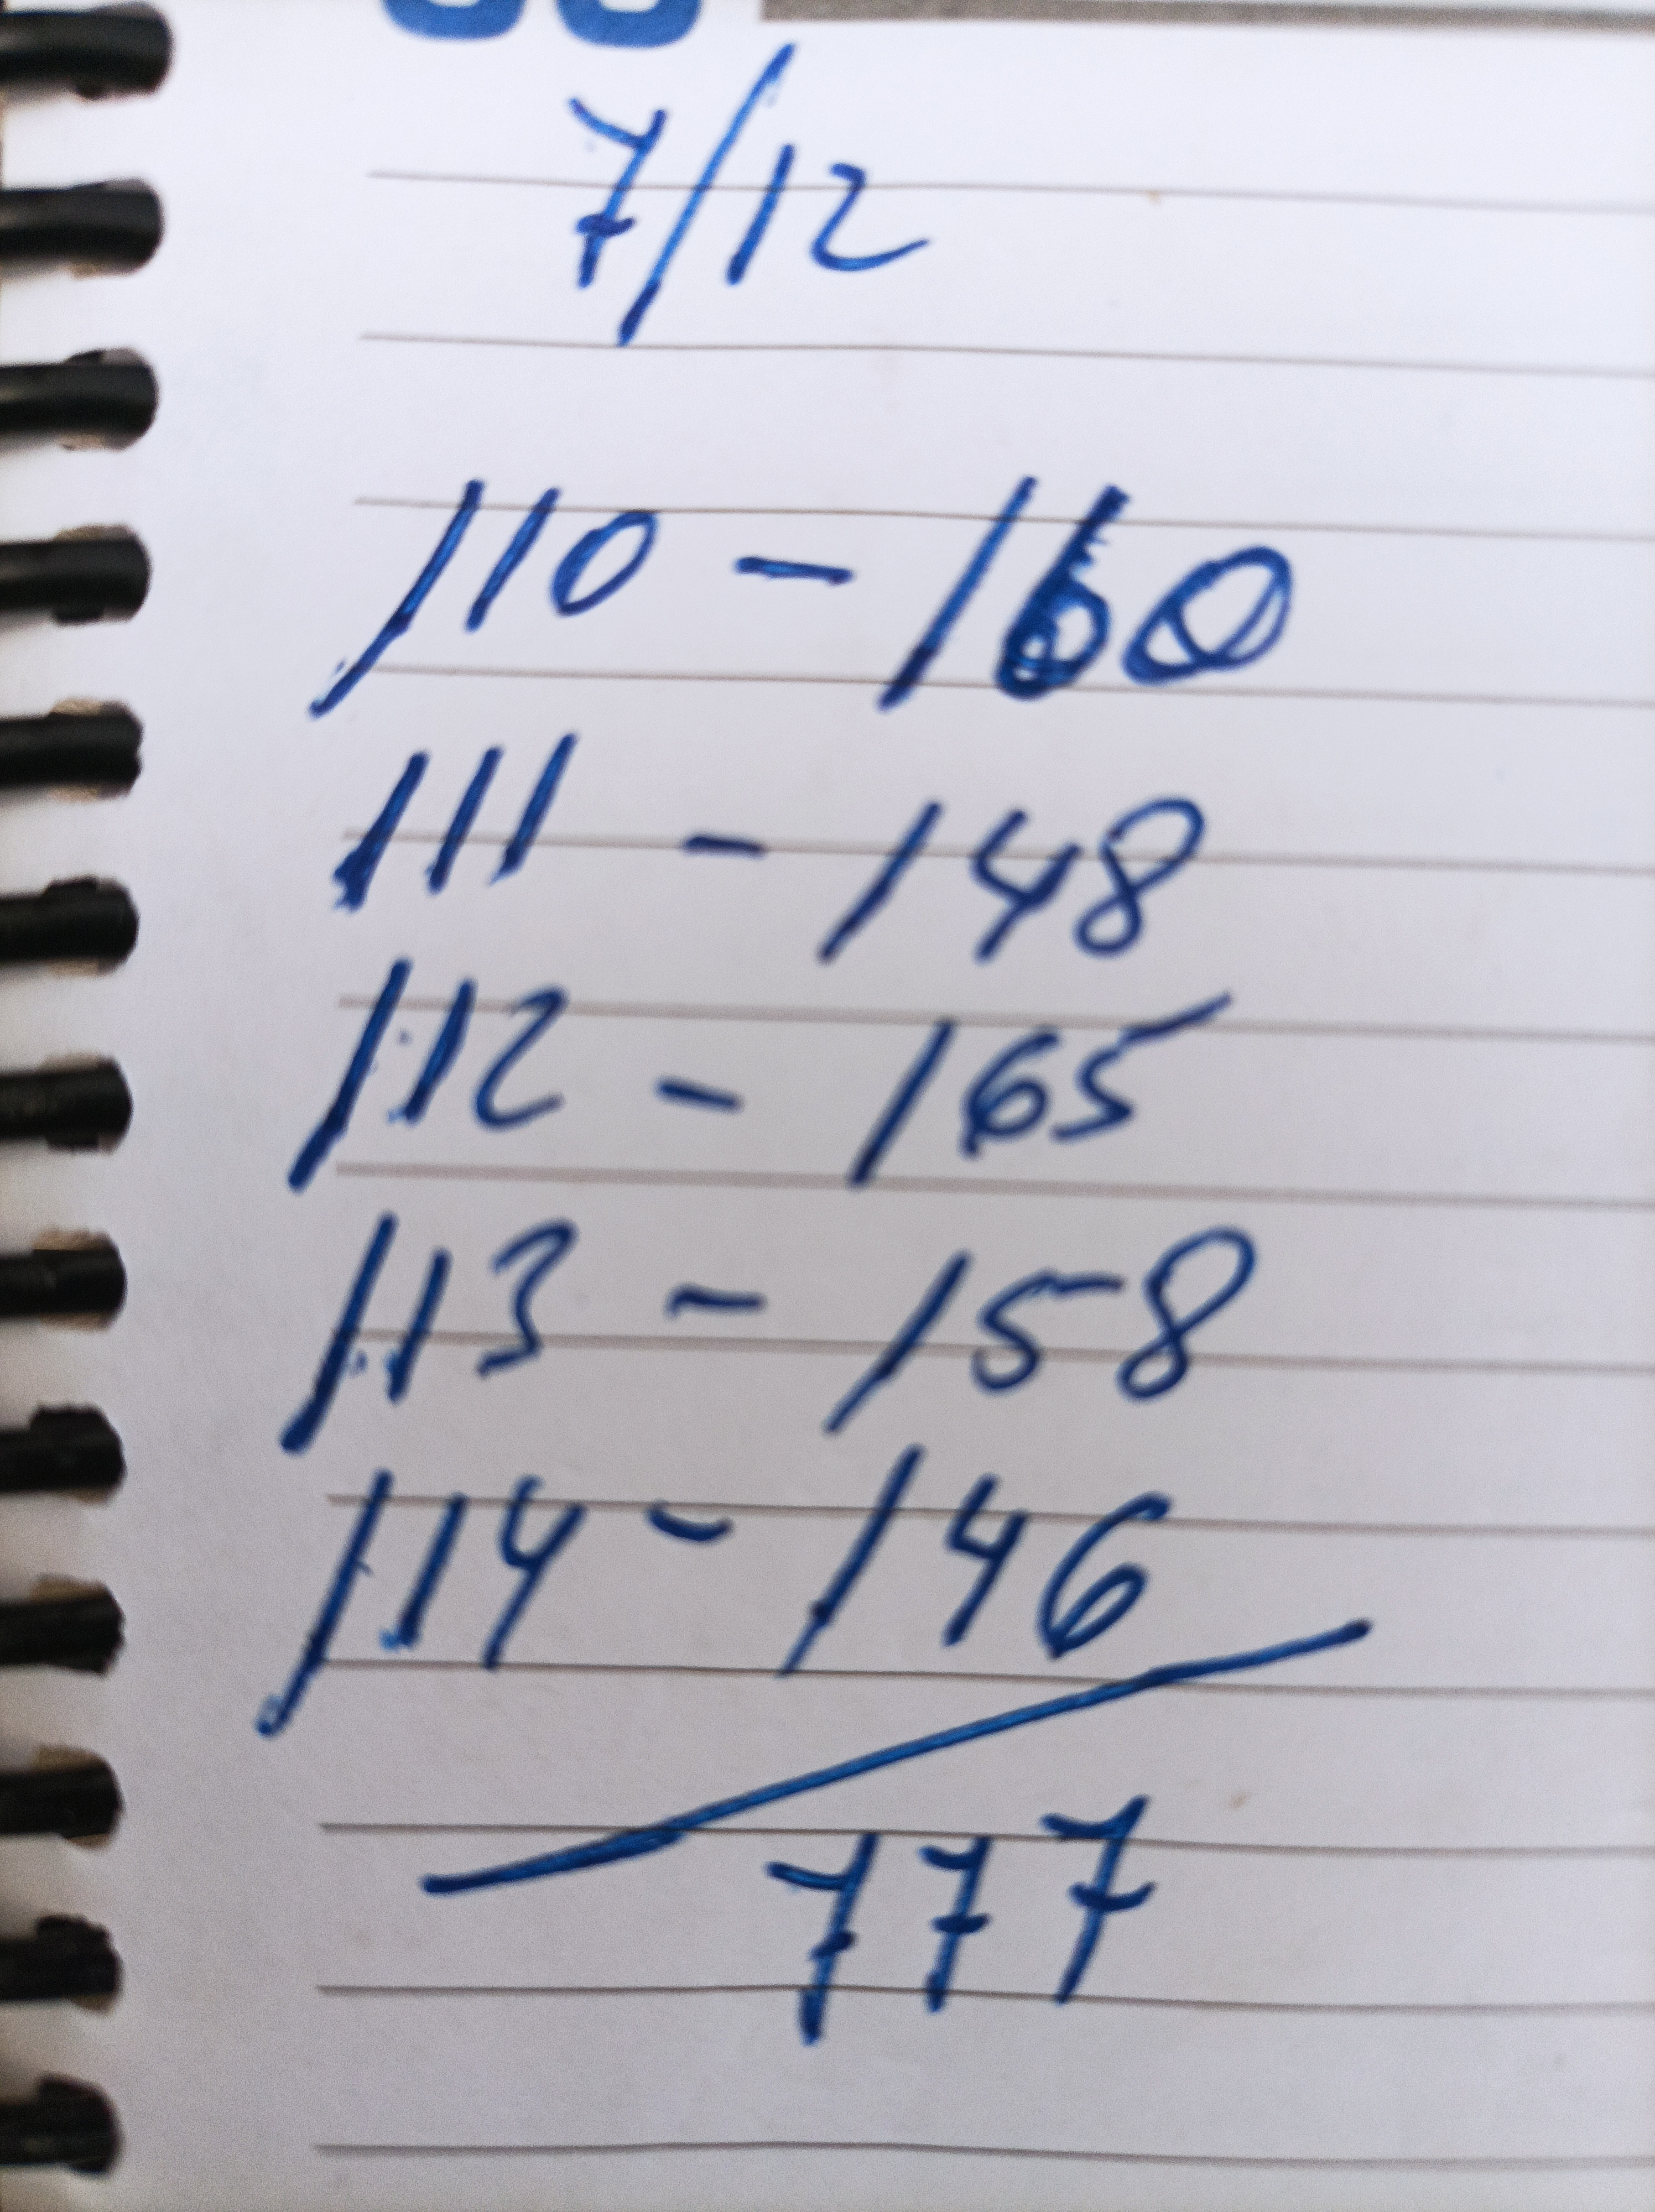 7/12
110 - 160
111 - 148
112 - 165
113 - 158
114 - 146
777